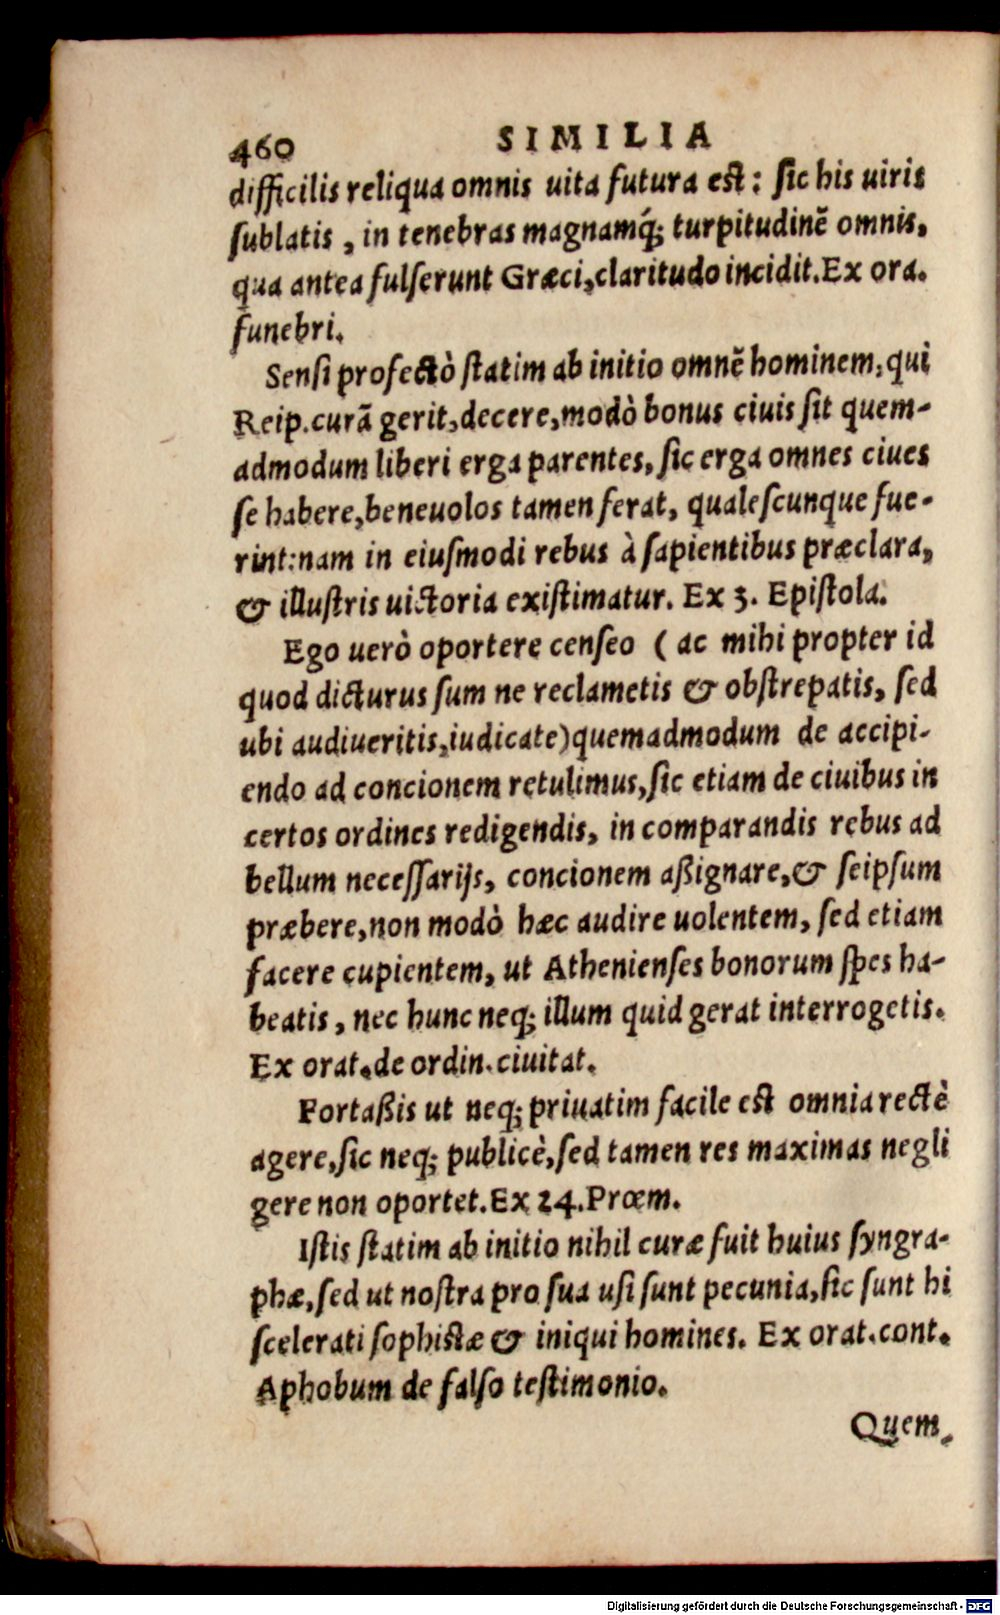 460 SIMILIA
difficilis reliqua omnis uita futura est: sic his uiris
sublatis, in tenebras magnamq́; turpitudinē omnis,
qua antea fulserunt Græci, claritudo incidit. Ex ora.
funebri.
Sensi profectò statim ab initio omnē hominem, qui
Reip. curā gerit, decere, modò bonus ciuis sit quem-
admodum liberi erga parentes, sic erga omnes ciues
se habere, beneuolos tamen ferat, qualescunque fue-
rint: nam in eiusmodi rebus à sapientibus præclara,
& illustris uictoria existimatur. Ex 3. Epistola.
Ego uerò oportere censeo (ac mihi propter id
quod dicturus sum ne reclametis & obstrepatis, sed
ubi audiueritis, iudicate) quemadmodum de accipi-
endo ad concionem retulimus, sic etiam de ciuibus in
certos ordines redigendis, in comparandis rebus ad
bellum necessarijs, concionem aßignare, & seipsum
præbere, non modò hæc audire uolentem, sed etiam
facere cupientem, ut Athenienses bonorum spes ha-
beatis, nec hunc neq; illum quid gerat interrogetis.
Ex orat. de ordin. ciuitat.
Fortaßis ut neq; priuatim facile est omnia rectè
agere, sic neq; publicè, sed tamen res maximas negli
gere non oportet. Ex 24. Prœm.
Istis statim ab initio nihil curæ fuit huius syngra-
phæ, sed ut nostra pro sua usi sunt pecunia, sic sunt hi
scelerati sophistæ & iniqui homines. Ex orat. cont.
Aphobum de falso testimonio.
Quem-
Digitalisierung gefördert durch die Deutsche Forschungsgemeinschaft - DFG